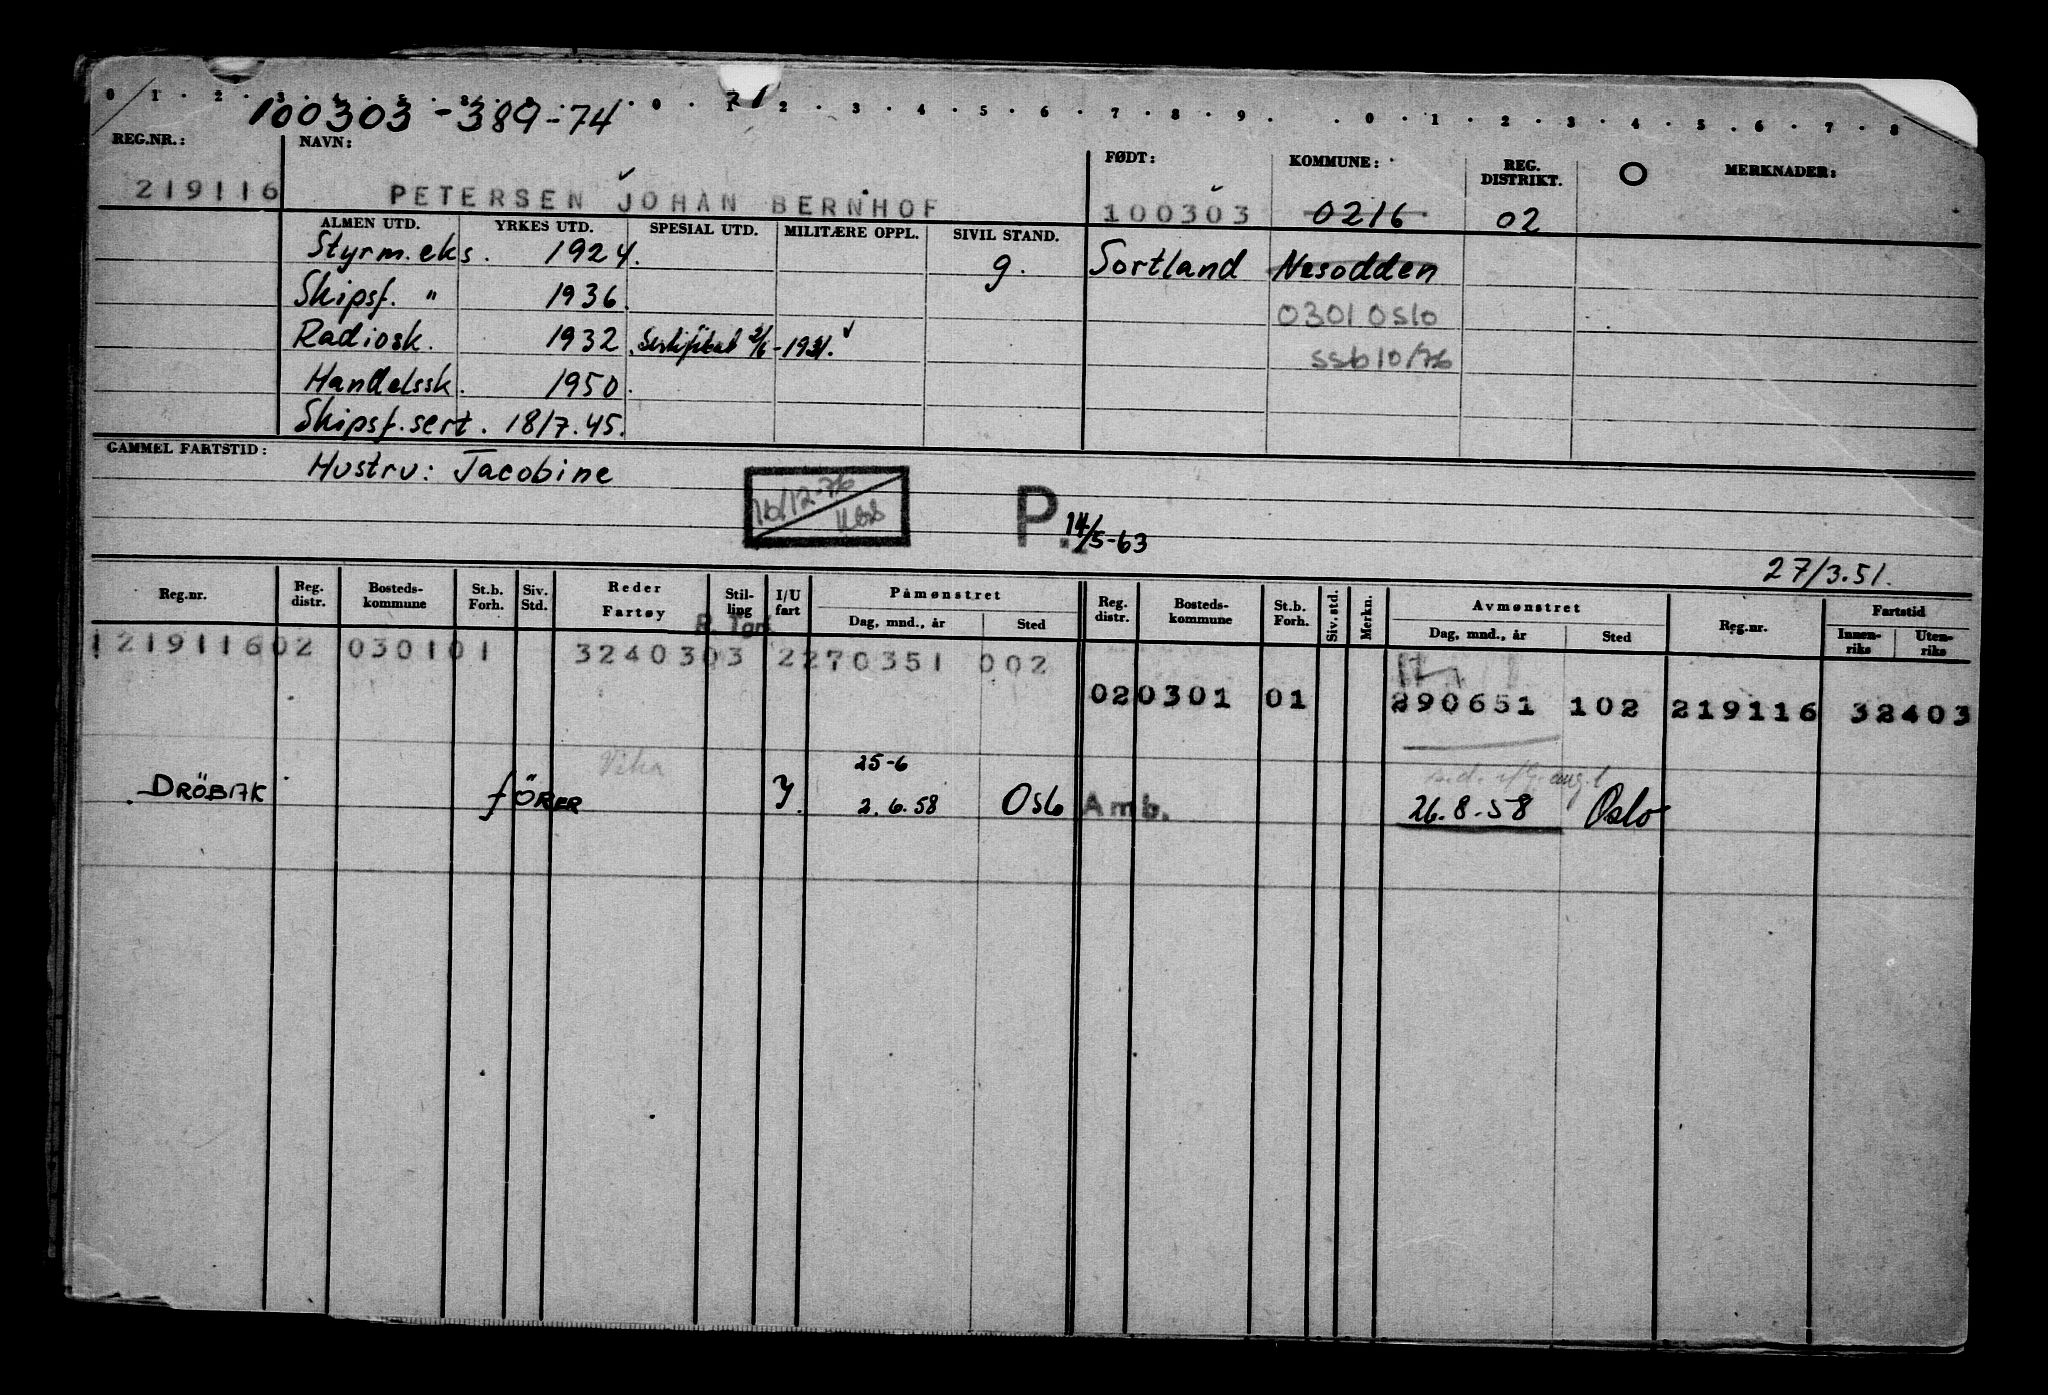 0 1 2 3 0 1 2 3 4 5 6 7 8 9 0 1 2 3 4 5 6 7 8
100303-389-74
REG.NR.: NAVN: FØDT: KOMMUNE: REG. DISTRIKT. O MERKNADER:
219116 PETERSEN JOHAN BERNHOF 100303 0216 02
ALMEN UTD. YRKES UTD. SPESIAL UTD. MILITÆRE OPPL. SIVIL STAND.
Styrm.eks. 1924. g. Sortland Nesodden
Skipsf. " 1936. 0301 Oslo
Radiosk. 1932. Sertifikat 2/6-1931. ssb 10/76
Handelssk. 1950.
Skipsf.sert. 18/7.45.
GAMMEL FARTSTID: Hustru: Jacobine
16/12-76
P. 14/5-63
27/3.51.
Reg.nr. Reg. distr. Bosteds-kommune St.b. Forh. Siv. Std. Reder Fartøy Stil-ling I/U fart Påmønstret Dag, mnd., år Sted Reg. distr. Bosteds-kommune St.b. Forh. Siv. std. Merkn. Avmønstret Dag, mnd., år Sted Reg.nr. Fartstid Innen-riks Uten-riks
1 219116 02 0301 01 32403 03 2 270351 002
02 0301 01 290651 102 219116 32403
Vika 25-6
DRÖBAK fÖRER I. 2.6.58 Oslo Amb. 26.8-58 Oslo